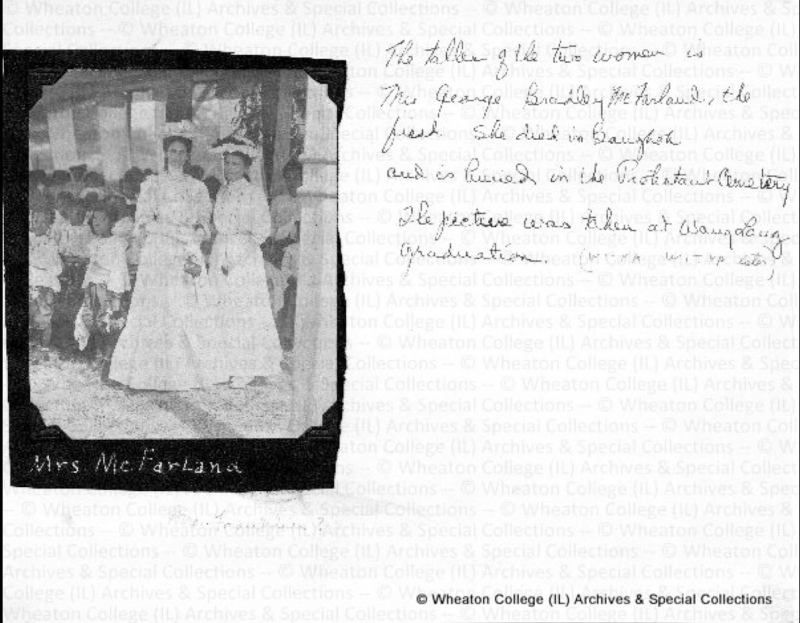 The taller of the two women is
Mrs George Bradley McFarland, the
first. She died in Bangkok
and is buried in the Protestant Cemetery
The picture was taken at Wang Lang
graduation
Mrs McFarland
© Wheaton College (IL) Archives & Special Collections